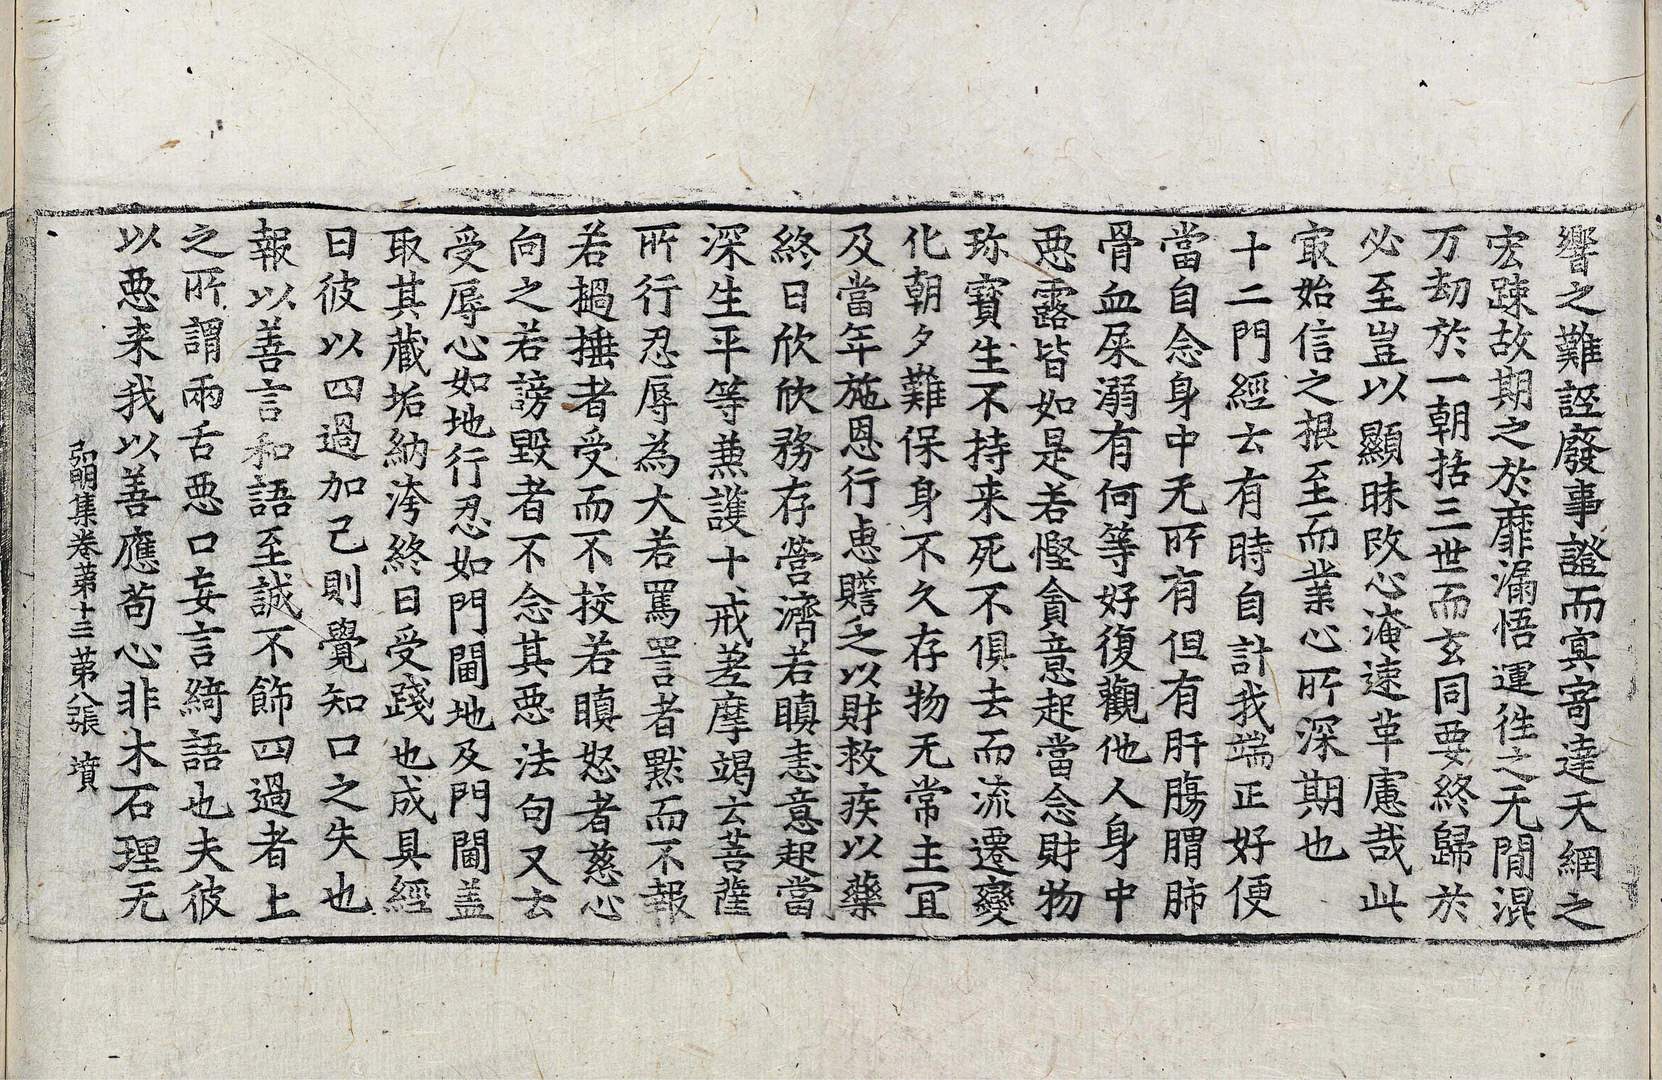 響之難誣廢事證而冥寄達天網之
宏踈故期之於靡漏悟運往之无間混
万劫於一朝括三世而玄同要終歸於
必至豈以顯昧改心淹速革慮哉此
㝡始信之根至而業心所深期也
十二門經云有時自計我端正好便
當自念身中无所有但有肝腸胃肺
骨血屎溺有何等好復觀他人身中
惡露皆如是若慳貪意起當念財物
珎寶生不持来死不俱去而流遷變
化朝夕難保身不久存物无常主冝
及當年施恩行恵贍乏以財救疾以藥
終日欣欣務存營濟若瞋恚意起當
深生平等兼護十戒差摩竭云菩薩
所行忍辱為大若罵詈者默而不報
若撾捶者受而不挍若瞋怒者慈心
向之若謗毀者不念其惡法句又云
受辱心如地行忍如門閫地及門閫盖
取其藏垢納洿終日受踐也成具經
曰彼以四過加己則覺知口之失也
報以善言和語至誠不飾四過者上
之所謂兩舌惡口妄言綺語也夫彼
以惡来我以善應苟心非木石理无
弘明集卷第十三 第八張 墳